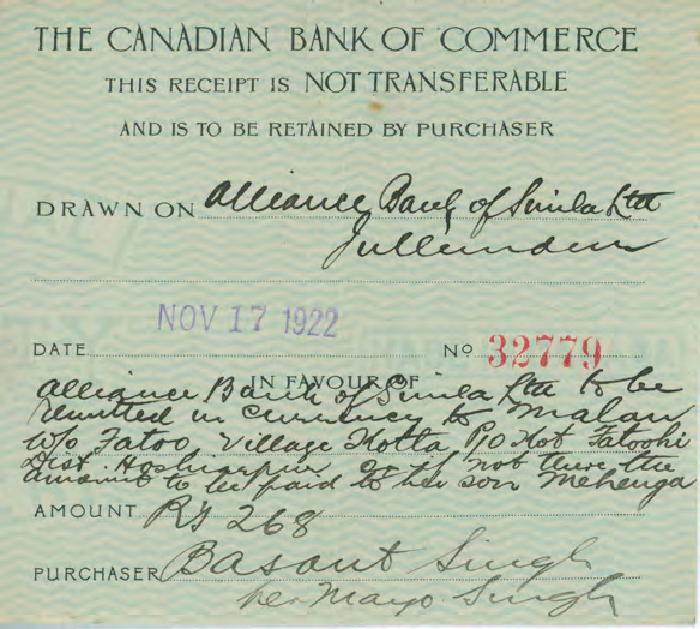 THE CANADIAN BANK OF COMMERCE
THIS RECEIPT IS NOT TRANSFERABLE
AND IS TO BE RETAINED BY PURCHASER
DRAWN ON Alliance Bank of Simla Ltd
Jullundur
DATE NOV 17 1922 No 32779
IN FAVOUR OF
Alliance Bank of Simla Ltd to be
remitted in currency to Malan
w/o Fatoo Village Kotla P/O Kot Fatoohi
Dist. Hoshiarpur or if not there the
amount to be paid to her son Mehenga
AMOUNT Rs 268
PURCHASER Basant Singh
per Mayo Singh